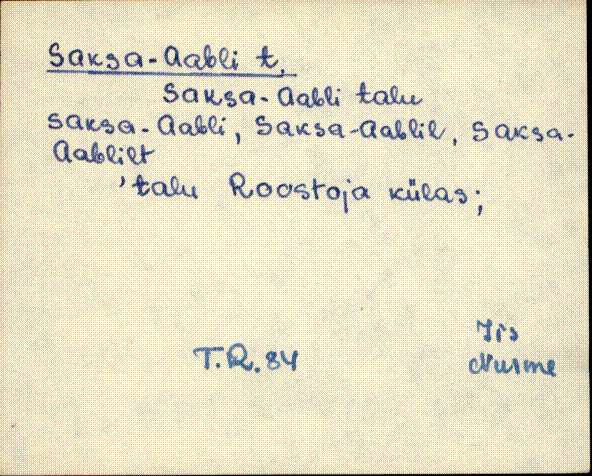 Saksa-Aabli t.
Saksa-Aabli talu
Saksa-Aabli, Saksa-Aablil, Saksa-
Aablilt
'talu Roostoja külas;
Iis
T.R. 84
Nurme